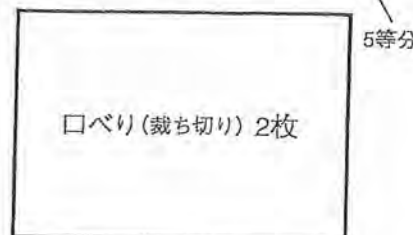 5等分
口べり(裁ち切り) 2枚